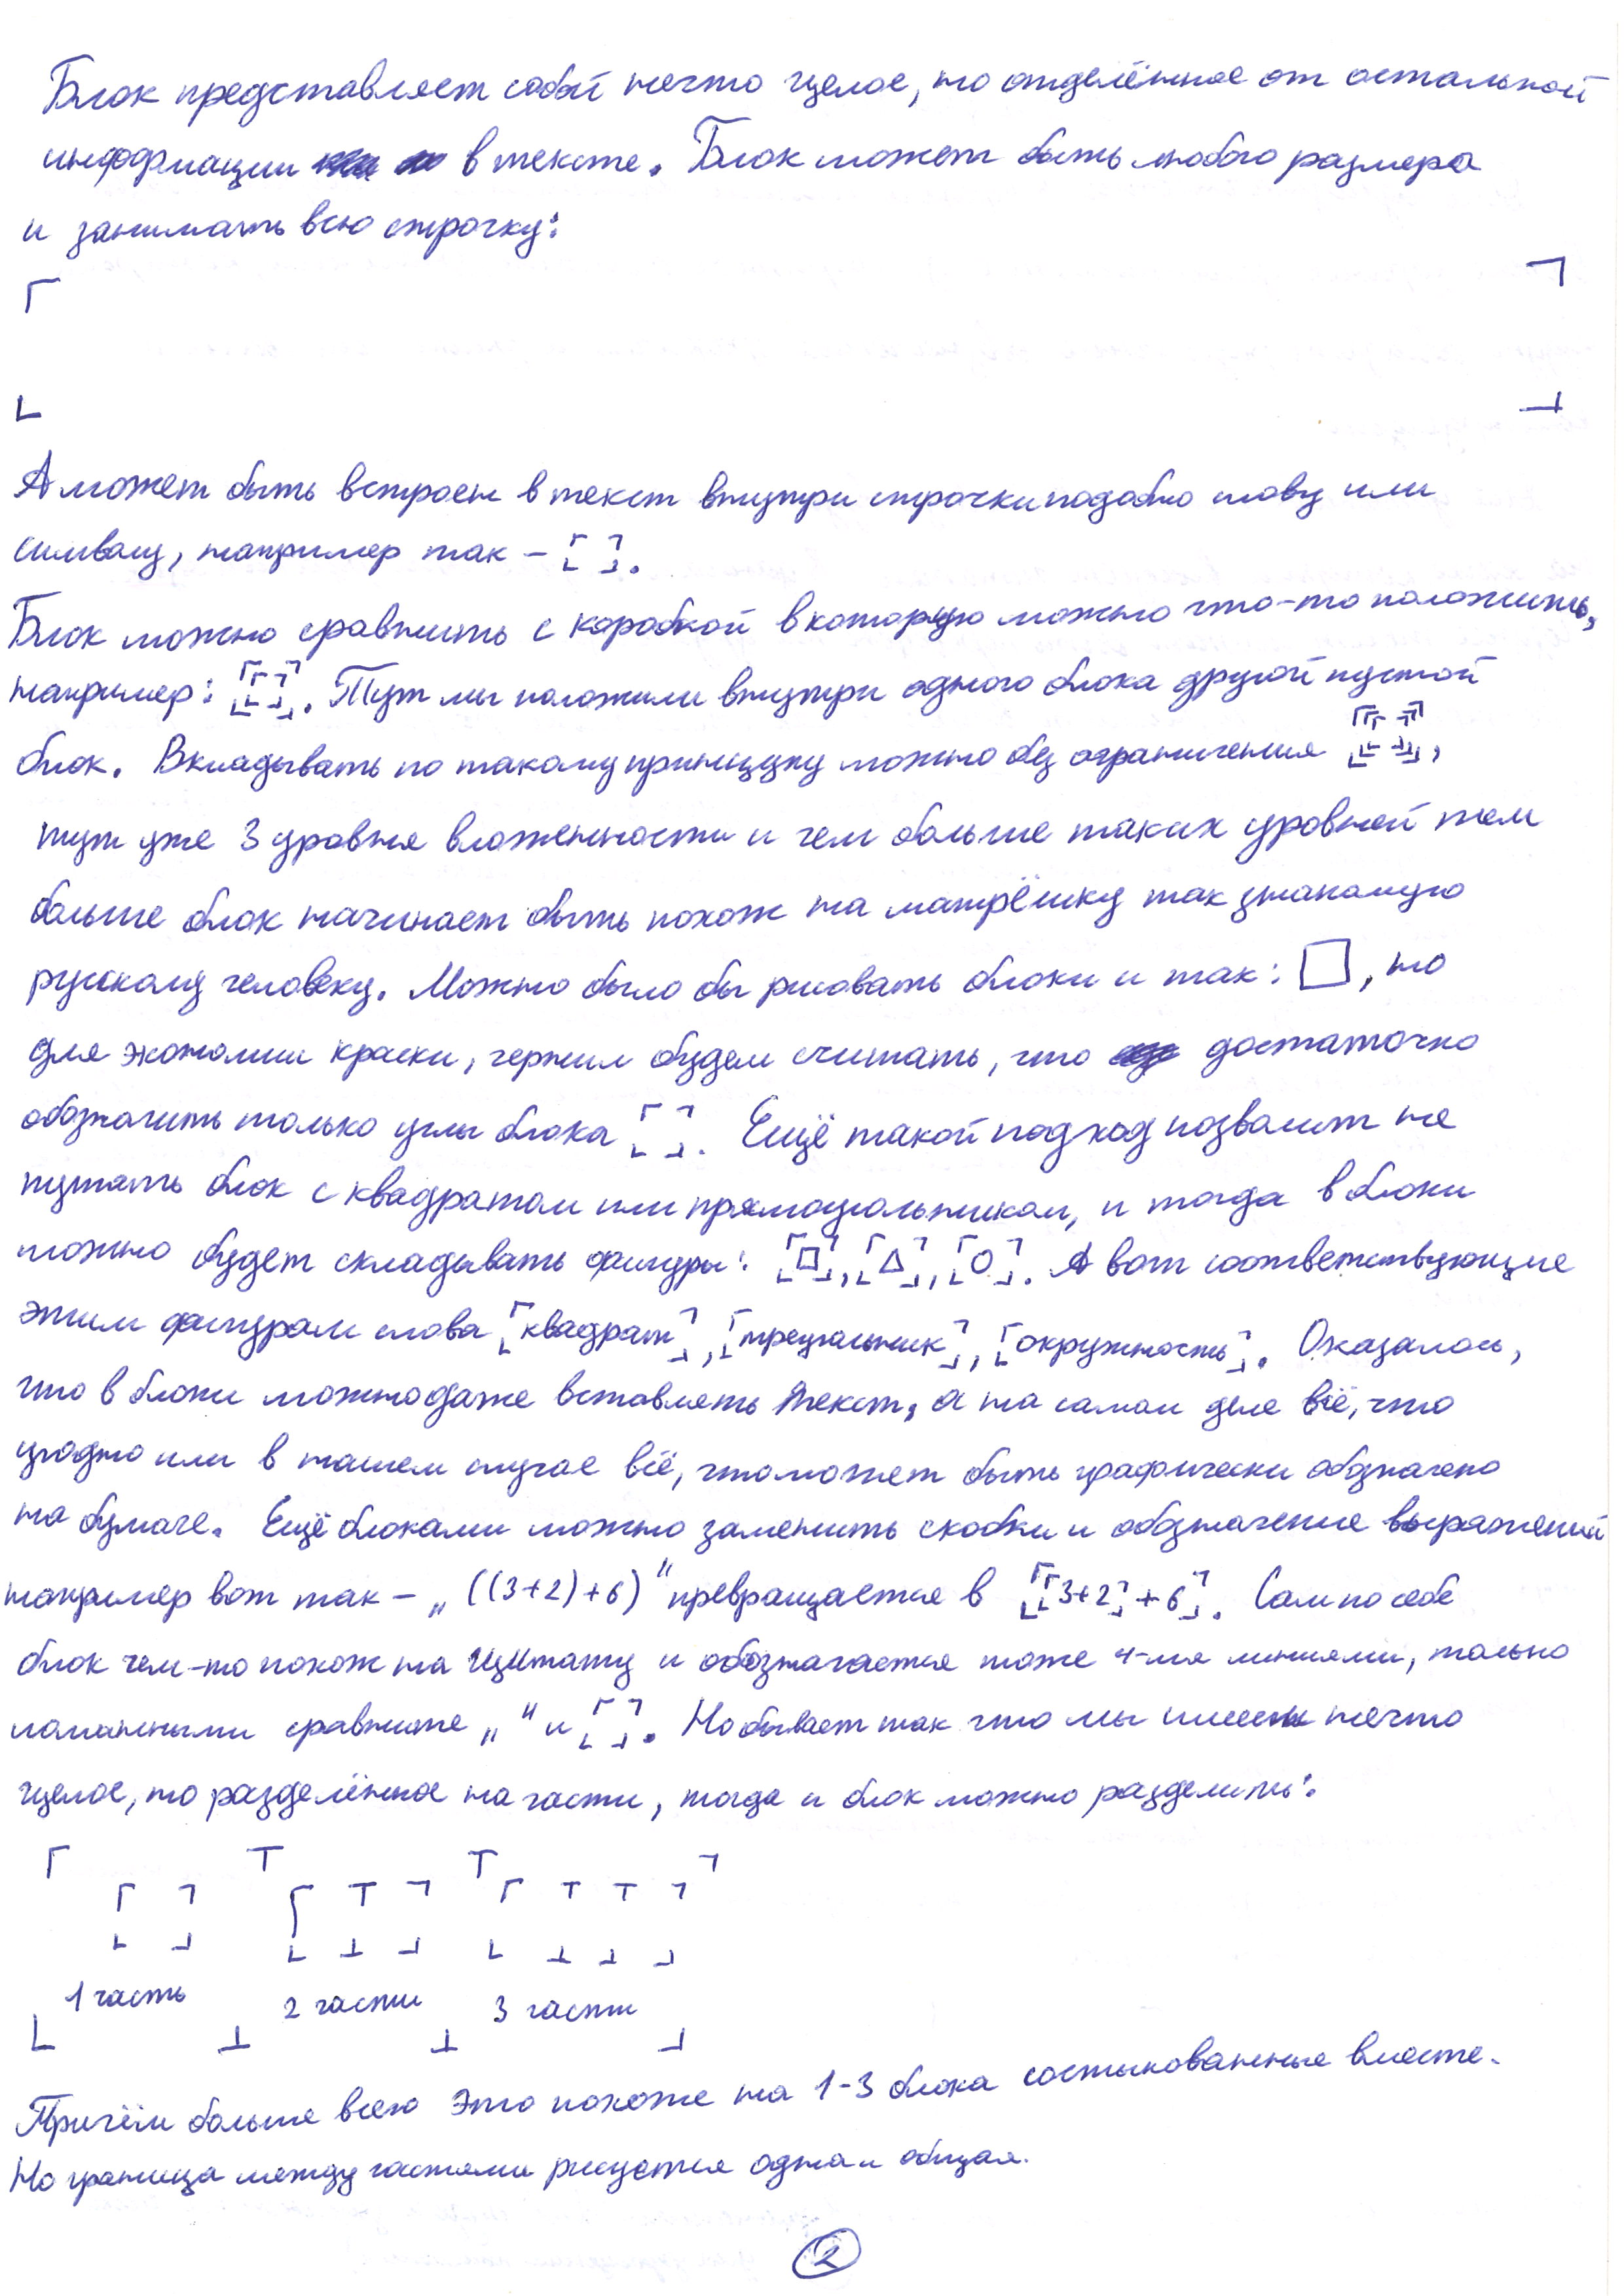 Блок представляет собой нечто целое, но отделённое от остальной
информации в тексте. Блок может быть любого размера
и занимать всю строчку:
⌜ ⌝
⌞ ⌟
А может быть встроен в текст внутри строчки подобно слову или
символу, например так – ⌜⌞ ⌝⌟.
Блок можно сравнить с коробкой в которую можно что-то положить,
например: ⌜⌞⌜⌞ ⌝⌟⌝⌟. Тут мы положили внутри одного блока другой пустой
блок. Вкладывать по такому принципу можно без ограничения ⌜⌞⌜⌞⌜⌞ ⌝⌟⌝⌟⌝⌟,
тут уже 3 уровня вложенности и чем больше таких уровней тем
больше блок начинает быть похож на матрёшку так знакомую
русскому человеку. Можно было бы рисовать блоки и так: □, но
для экономии краски, чернил будем считать, что достаточно
обозначить только углы блока ⌜⌞ ⌝⌟. Ещё такой подход позволит не
путать блок с квадратом или прямоугольником, и тогда в блоки
можно будет складывать фигуры: ⌜⌞□⌝⌟, ⌜⌞△⌝⌟, ⌜⌞○⌝⌟. А вот соответствующие
этим фигурам слова ⌜⌞квадрат⌝⌟, ⌜⌞треугольник⌝⌟, ⌜⌞окружность⌝⌟. Оказалось,
что в блоки можно даже вставлять текст, а на самом деле всё, что
угодно или в нашем случае всё, что может быть графически обозначено
на бумаге. Ещё блоками можно заменить скобки и обозначение выражений
например вот так – „((3+2)+6)" превращается в ⌜⌞⌜⌞3+2⌝⌟+6⌝⌟. Сам по себе
блок чем-то похож на цитату и обозначается тоже 4-мя линиями, только
ломанными сравните „ " и ⌜⌞ ⌝⌟. Но бывает так что мы имеем нечто
целое, но разделённое на части, тогда и блок можно разделить:
⌜ T T ⌝
⌜ ⌝ ⌜ T ⌝ ⌜ T T ⌝
⌞ ⌟ ⌞ ⊥ ⌟ ⌞ ⊥ ⊥ ⌟
1 часть 2 части 3 части
⌞ ⊥ ⊥ ⌟
Причём больше всего это похоже на 1-3 блока состыкованные вместе.
Но граница между частями рисуется одна и общая.
2